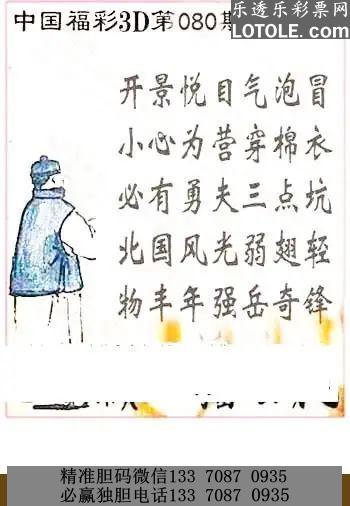 中国福彩3D第080期
乐透乐彩票网
LOTOLE.COM
开景悦目气泡冒
小心为营穿棉衣
必有勇夫三点坑
北国风光弱翅轻
物丰年强岳奇锋
精准胆码微信133 7087 0935
必赢独胆电话133 7087 0935